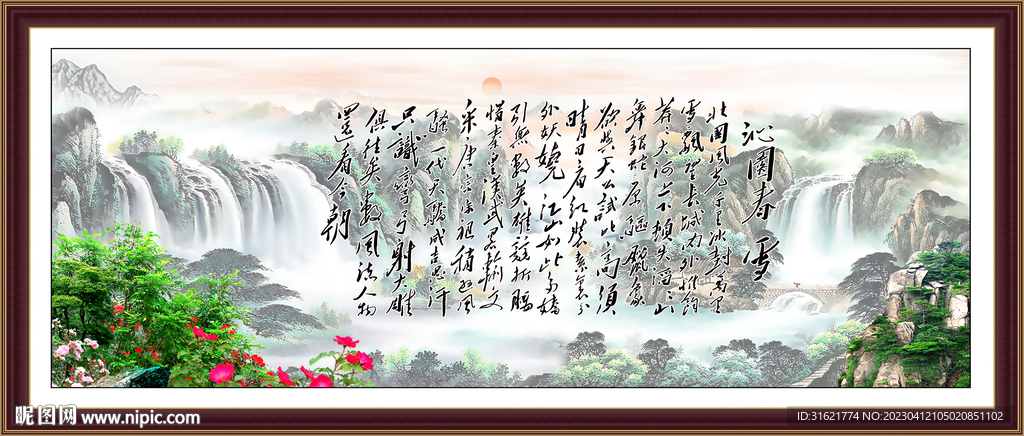 沁園春 雪
北国風光千里冰封萬里
雪飘望长城内外惟餘
莽々大河上下頓失滔々山
舞銀蛇原驅臘象
欲与天公试比高须
晴日看红装素裹分
外妖娆江山如此多嬌
引無數英雄競折腰
惜秦皇漢武略輸文
采唐宗宋祖稍逊风
騷一代天驕成吉思汗
只識彎弓射大雕
俱往矣數风流人物
還看今朝
昵图网 www.nipic.com
ID:31621774 NO:20230412105020851102